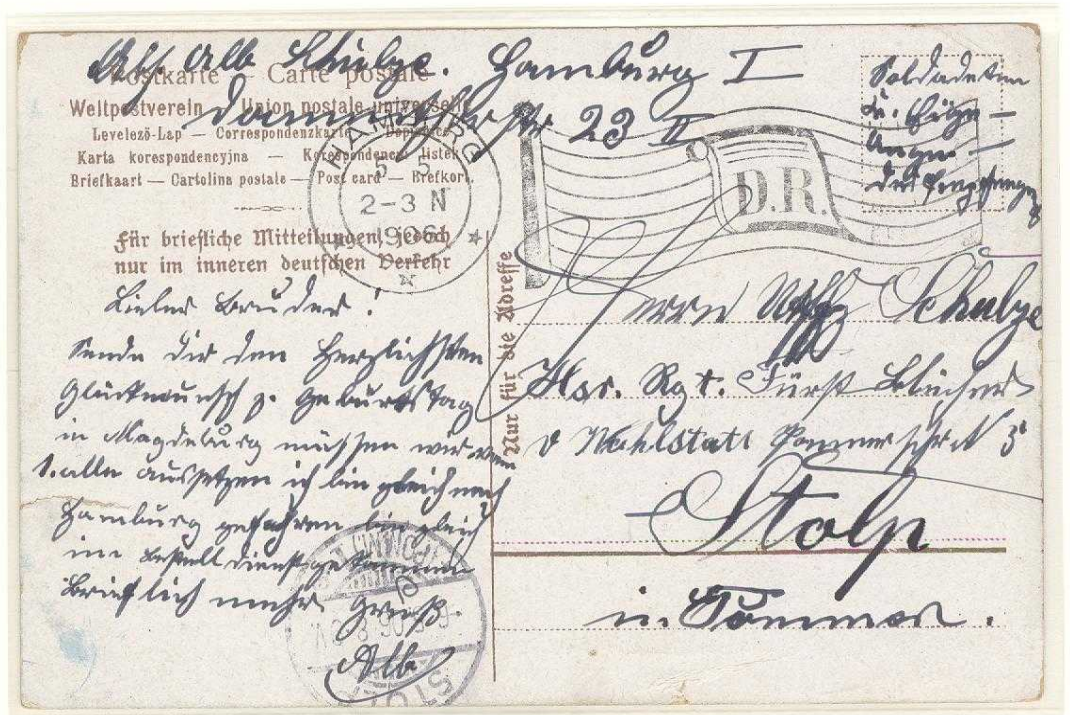 Alb Schulze. Hamburg I
Postkarte — Carte postale
Weltpostverein — Union postale universelle
Dammthorstr 23 II
Levelező-Lap — Correspondenzkarte — Dopisnice
Karta korespondencyjna — Korespondenční lístek
Briefkaart — Cartolina postale — Post card — Brefkort
Für briefliche Mitteilungen, jedoch
nur im inneren deutschen Verkehr
HAMBURG
5
2-3 N
1906
D.R.
Soldaten
Eigne
Ange
des Empfängers
Lieber Bruder!
Sende Dir den Herzlichsten
Glückwunsch z. Geburtstag
in Magdeburg müssen wir
alle aussetzen ich bin gleich nach
Hamburg gefahren bin gleich
im dienst gekommen
Brieflich mehr Gruß
Alb
Nur für die Adresse
Herrn Uffz Schulze
Hus. Rgt. Fürst Blücher
v Wahlstatt Pommersche N 5
Stolp
in Pommern.
STOLP
(POMM.)